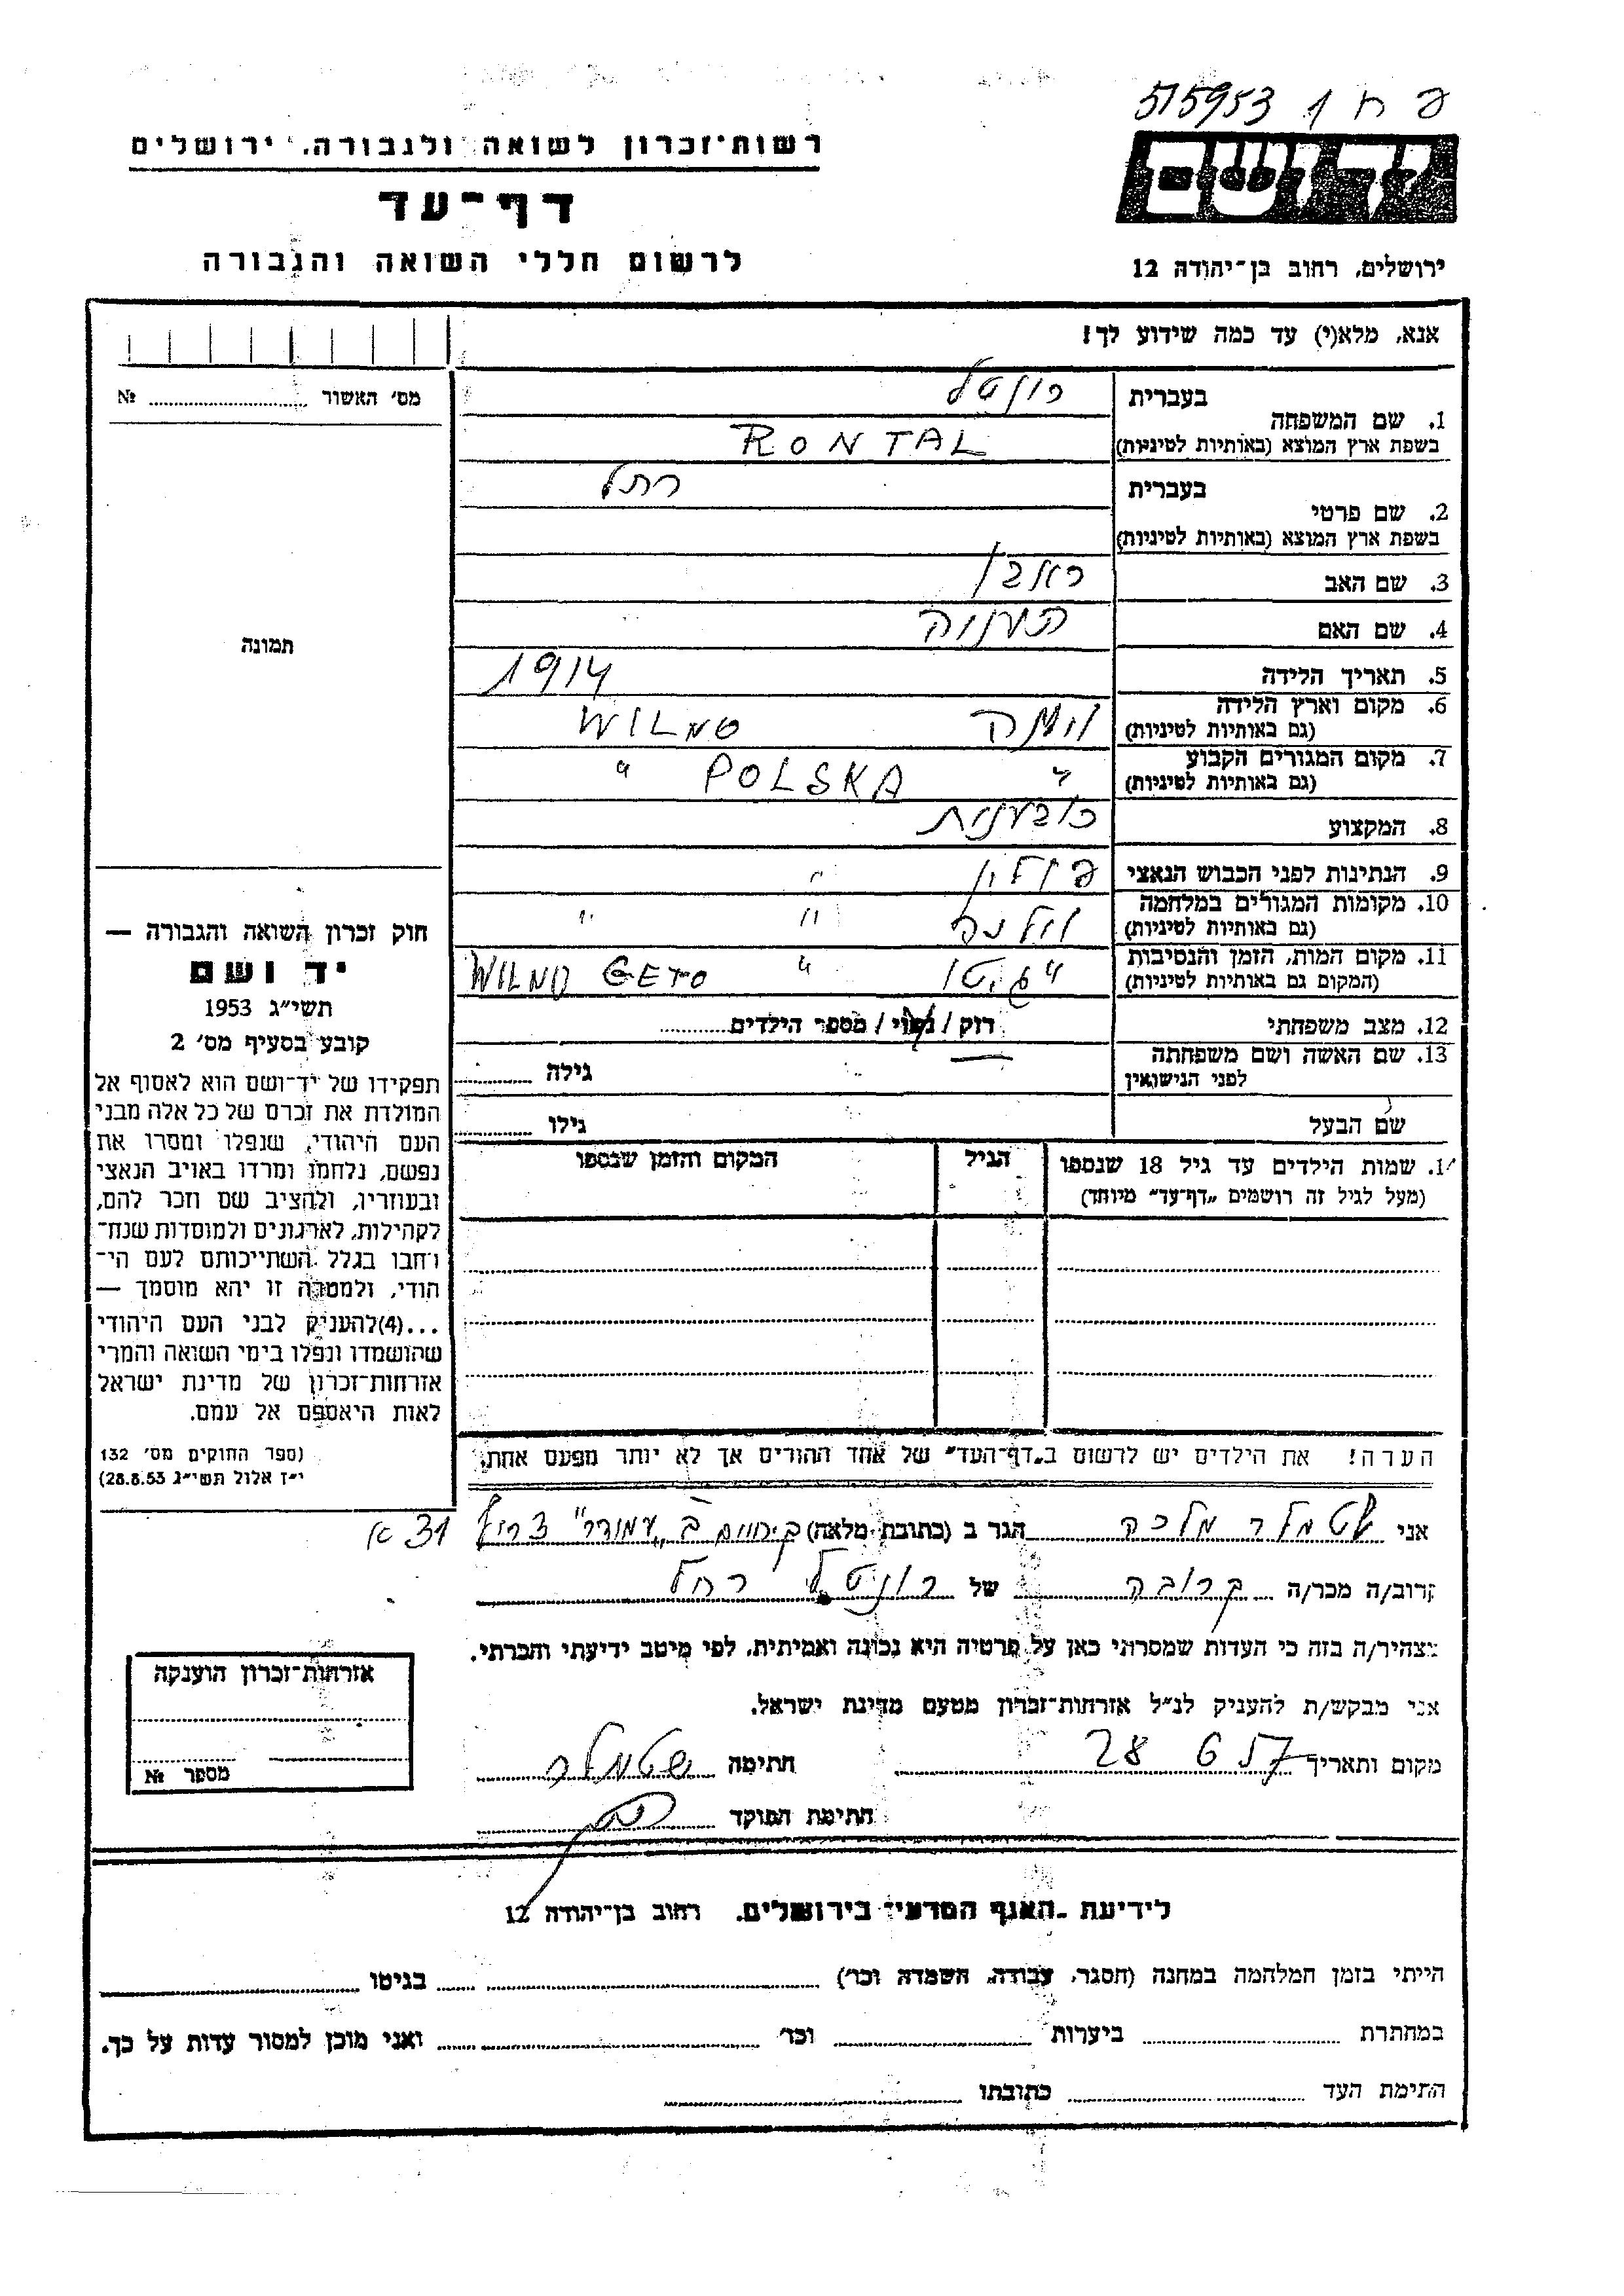 פ ח 1 515953
יד ושם
רשות־זכרון לשואה ולגבורה, ירושלים
דף־עד
לרשום חללי השואה והגבורה
ירושלים, רחוב בן־יהודה 12
אנא, מלא(י) עד כמה שידוע לך!
מס׳ האשור № 
תמונה
1. שם המשפחה בעברית רונטל
בשפת ארץ המוצא (באותיות לטיניות) RONTAL
2. שם פרטי בעברית רחל
בשפת ארץ המוצא (באותיות לטיניות)
3. שם האב ראובן
4. שם האם
5. תאריך הלידה 1914
6. מקום וארץ הלידה וילנה WILNO
(גם באותיות לטיניות)
7. מקום המגורים הקבוע " POLSKA "
(גם באותיות לטיניות)
8. המקצוע כובענית
9. הנתינות לפני הכבוש הנאצי פולין "
10. מקומות המגורים במלחמה וילנה " "
(גם באותיות לטיניות)
11. מקום המות, הזמן והנסיבות " גיטו " WILNO GETO
(המקום גם באותיות לטיניות)
12. מצב משפחתי רוק / נשוי / מספר הילדים
13. שם האשה ושם משפחתה גילה
לפני הנישואין
שם הבעל גילו
14. שמות הילדים עד גיל 18 שנספו הגיל המקום והזמן שנספו
(מעל לגיל זה רושמים „דף־עד״ מיוחד)
הערה! את הילדים יש לרשום ב„דף־העד״ של אחד ההורים אך לא יותר מפעם אחת.
חוק זכרון השואה והגבורה —
יד ושם
תשי״ג 1953
קובע בסעיף מס׳ 2
תפקידו של יד־ושם הוא לאסוף אל
המולדת את זכרם של כל אלה מבני
העם היהודי, שנפלו ומסרו את
נפשם, נלחמו ומרדו באויב הנאצי
ובעוזריו, ולהציב שם וזכר להם,
לקהילות, לארגונים ולמוסדות שנח־
רבו בגלל השתייכותם לעם הי־
הודי, ולמטרה זו יהא מוסמך —
...(4)להעניק לבני העם היהודי
שהושמדו ונפלו בימי השואה והמרי
אזרחות־זכרון של מדינת ישראל
לאות היאספם אל עמם.
(ספר החוקים מס׳ 132
י״ז אלול תשי״ג 28.8.53)
אני שטמלר מלכה הגר ב (כתובת מלאה) ב „עמידר" צריף 31 א
קרוב/ה מכר/ה קרובה של רונטל רחל
מצהיר/ה בזה כי העדות שמסרתי כאן על פרטיה היא נכונה ואמיתית, לפי מיטב ידיעתי והכרתי.
אני מבקש/ת להעניק לנ״ל אזרחות־זכרון מטעם מדינת ישראל.
מקום ותאריך 28 6 57 חתימה שטמלר
חתימת הפוקד
אזרחות־זכרון הוענקה
מספר №
לידיעת האגף המדעי בירושלים, רחוב בן־יהודה 12
הייתי בזמן המלחמה במחנה (הסגר, עבודה, השמדה וכו׳) בגיטו
במחתרת ביערות וכו׳ ואני מוכן למסור עדות על כך.
חתימת העד כתובתו